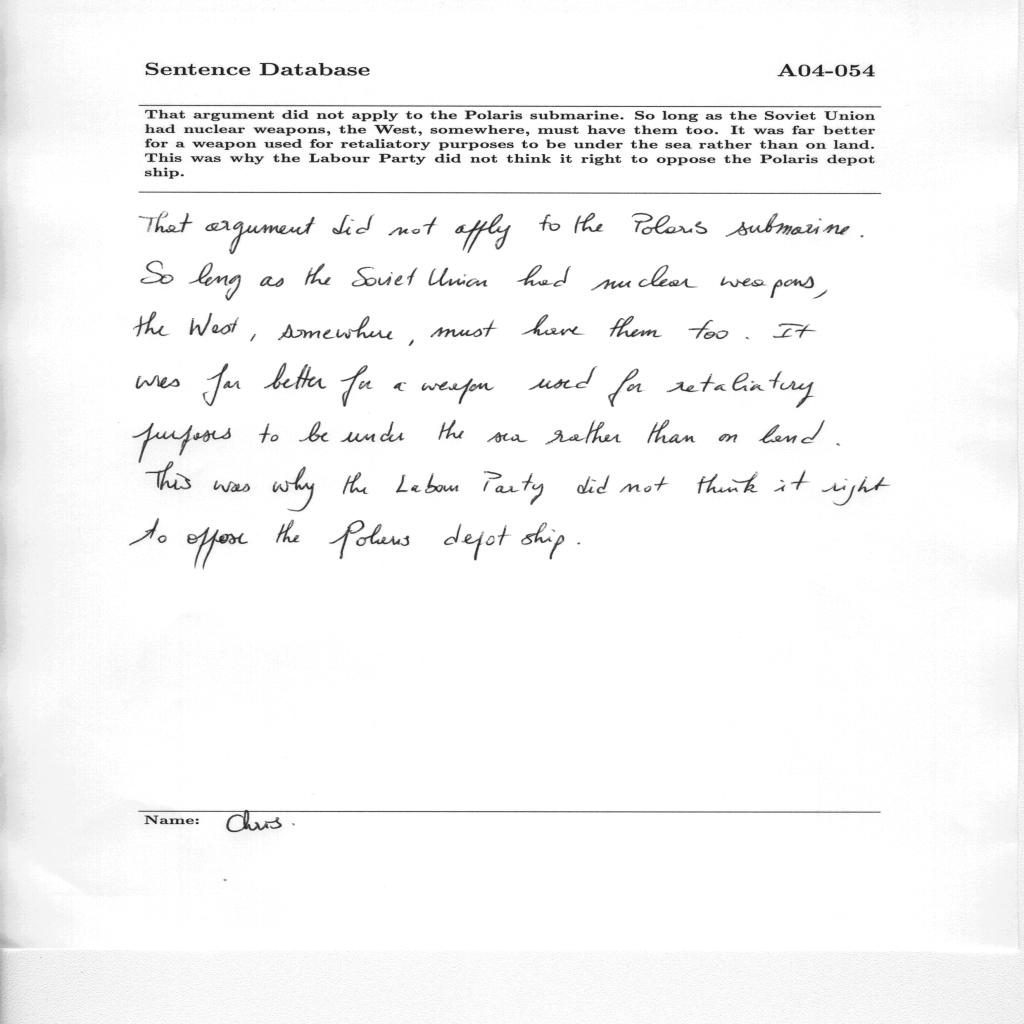 Sentence Database A04-054
That argument did not apply to the Polaris submarine. So long as the Soviet Union
had nuclear weapons, the West, somewhere, must have them too. It was far better
for a weapon used for retaliatory purposes to be under the sea rather than on land.
This was why the Labour Party did not think it right to oppose the Polaris depot
ship.
That argument did not apply to the Polaris submarine.
So long as the Soviet Union had nuclear weapons,
the West, somewhere, must have them too. It
was far better for a weapon used for retaliatory
purposes to be under the sea rather than on land.
This was why the Labour Party did not think it right
to oppose the Polaris depot ship.
Name: Chris.